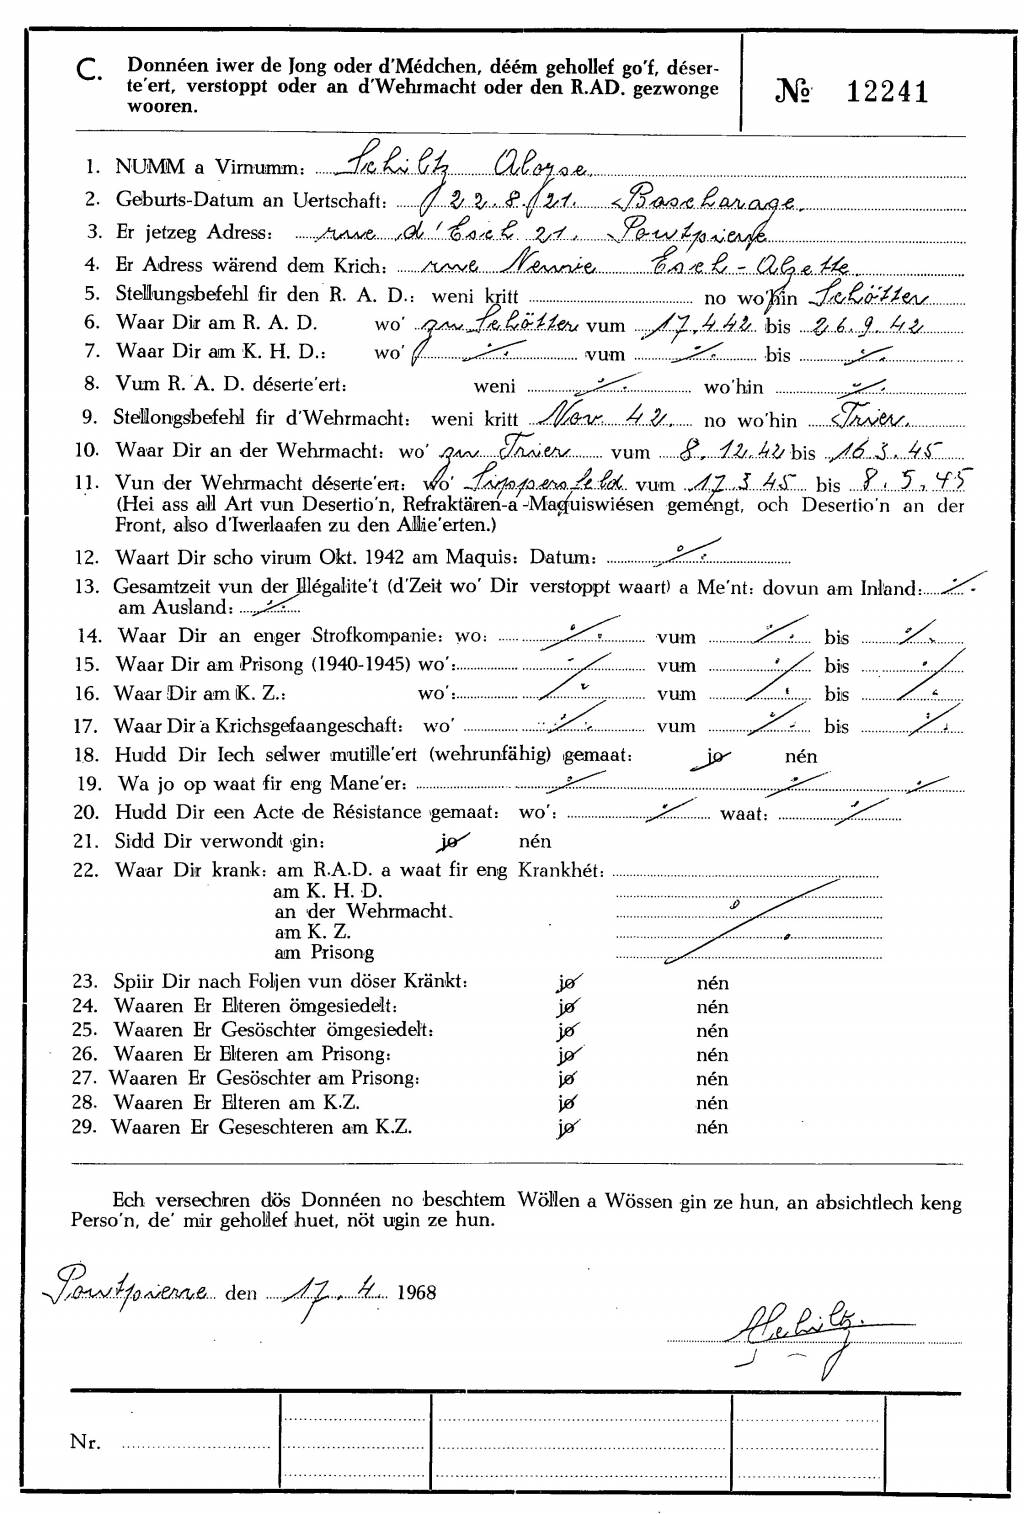 C. Donnéen iwer de Jong oder d'Médchen, déém gehollef go'f, déser-
te'ert, verstoppt oder an d'Wehrmacht oder den R.AD. gezwonge
wooren.
№ 12241
1. NUMM a Virnumm: Schiltz Aloyse.
2. Geburts-Datum an Uertschaft: 22.8.21. Bascharage.
3. Er jetzeg Adress: rue d'Esch 21. Pontpierre
4. Er Adress wärend dem Krich: rue Nennie Esch-Alzette.
5. Stellungsbefehl fir den R. A. D.: weni kritt no wo'hin Schötter
6. Waar Dir am R. A. D. wo' zu Schötter vum 17.4.42 bis 26.9.42
7. Waar Dir am K. H. D.: wo' ./. vum ./. bis ./.
8. Vum R. A. D. déserte'ert: weni ./. wo'hin ./.
9. Stellongsbefehl fir d'Wehrmacht: weni kritt Nov. 42. no wo'hin Trier.
10. Waar Dir an der Wehrmacht: wo' zu Trier vum 8.12.42 bis 16.3.45
11. Vun der Wehrmacht déserte'ert: wo' vum 17.3.45 bis 8.5.45
(Hei ass all Art vun Desertio'n, Refraktären-a -Maquiswiésen gemengt, och Desertio'n an der
Front, also d'Iwerlaafen zu den Allie'erten.)
12. Waart Dir scho virum Okt. 1942 am Maquis: Datum: ./.
13. Gesamtzeit vun der Illégalite't (d'Zeit wo' Dir verstoppt waart) a Me'nt: dovun am Inland: ./.
am Ausland: ./.
14. Waar Dir an enger Strofkompanie: wo: ./. vum ./. bis ./.
15. Waar Dir am Prisong (1940-1945) wo': ./. vum ./. bis ./.
16. Waar Dir am K. Z.: wo': ./. vum ./. bis ./.
17. Waar Dir a Krichsgefaangeschaft: wo' ./. vum ./. bis ./.
18. Hudd Dir Iech selwer mutille'ert (wehrunfähig) gemaat: jo nén
19. Wa jo op waat fir eng Mane'er: ./. ./. ./.
20. Hudd Dir een Acte de Résistance gemaat: wo': ./. waat: ./.
21. Sidd Dir verwondt gin: jo nén
22. Waar Dir krank: am R.A.D. a waat fir eng Krankhét:
am K. H. D.
an der Wehrmacht. ./.
am K. Z.
am Prisong
23. Spiir Dir nach Foljen vun döser Kränkt: jo nén
24. Waaren Er Elteren ömgesiedelt: jo nén
25. Waaren Er Gesöschter ömgesiedelt: jo nén
26. Waaren Er Elteren am Prisong: jo nén
27. Waaren Er Gesöschter am Prisong: jo nén
28. Waaren Er Elteren am K.Z. jo nén
29. Waaren Er Geseschteren am K.Z. jo nén
Ech versechren dös Donnéen no beschtem Wöllen a Wössen gin ze hun, an absichtlech keng
Perso'n, de' mir gehollef huet, nöt ugin ze hun.
Pontpierre den 17.4. 1968
ASchiltz.
Nr.